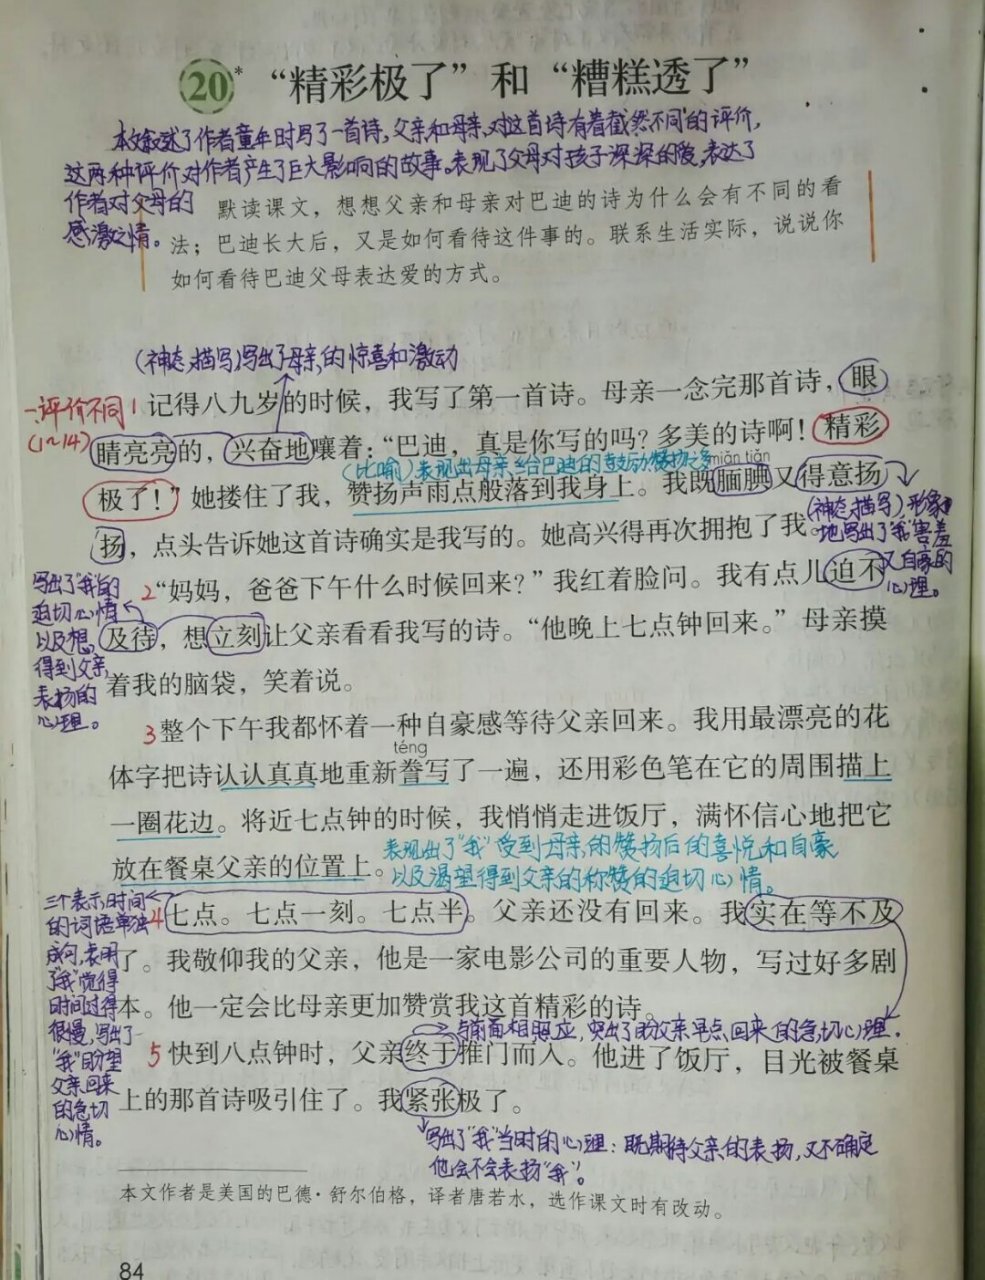 20* “精彩极了”和“糟糕透了”
本文叙述了作者童年时写了一首诗,父亲和母亲,对这首诗有着截然不同的评价,
这两种评价对作者产生了巨大影响的故事。表现了父母对孩子深深的爱,表达了
作者对父母的
感激之情。
默读课文，想想父亲和母亲对巴迪的诗为什么会有不同的看
法；巴迪长大后，又是如何看待这件事的。联系生活实际，说说你
如何看待巴迪父母表达爱的方式。
(神态描写)写出了母亲的惊喜和激动
一.评价不同
(1~14)
1 记得八九岁的时候，我写了第一首诗。母亲一念完那首诗，眼
睛亮亮的，兴奋地嚷着：“巴迪，真是你写的吗？多美的诗啊！精彩
(比喻)表现出母亲给巴迪的鼓励赞扬之多
miǎn tiǎn
极了！”她搂住了我，赞扬声雨点般落到我身上。我既腼腆又得意扬
(神态描写),形象
地写出了“我”害羞
又自豪的
心理。
扬，点头告诉她这首诗确实是我写的。她高兴得再次拥抱了我。
2 “妈妈，爸爸下午什么时候回来？”我红着脸问。我有点儿迫不
写出了“我”的
迫切心情
以及想
得到父亲
表扬的
心理。
及待，想立刻让父亲看看我写的诗。“他晚上七点钟回来。”母亲摸
着我的脑袋，笑着说。
3 整个下午我都怀着一种自豪感等待父亲回来。我用最漂亮的花
téng
体字把诗认认真真地重新誊写了一遍，还用彩色笔在它的周围描上
一圈花边。将近七点钟的时候，我悄悄走进饭厅，满怀信心地把它
放在餐桌父亲的位置上。
表现出了“我”受到母亲的赞扬后的喜悦和自豪
以及渴望得到父亲的称赞的迫切心情。
三个表示时间
的词语单独
成句,表明
了“我”觉得
时间过得
很慢,写出了
“我”盼望
父亲回来
的急切
心情。
4 七点。七点一刻。七点半。父亲还没有回来。我实在等不及
了。我敬仰我的父亲，他是一家电影公司的重要人物，写过好多剧
本。他一定会比母亲更加赞赏我这首精彩的诗。
与前面相照应,突出了盼父亲早点回来的急切心理。
5 快到八点钟时，父亲终于推门而入。他进了饭厅，目光被餐桌
上的那首诗吸引住了。我紧张极了。
写出了“我”当时的心理：既期待父亲的表扬,又不确定
他会不会表扬“我”。
本文作者是美国的巴德·舒尔伯格，译者唐若水，选作课文时有改动。
84